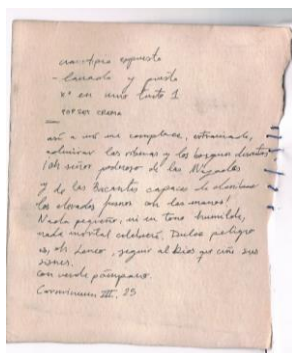 cianotipia expuesta
- lavado y puesta
xª en uno texto 1
POR SER CREMA
así a mí me complace, extraviado,
admirar las riberas y los bosques desiertos
¡Oh señor poderoso de las Náyades
y de las Bacantes capaces de derribar
los elevados fresnos con las manos!
Nada pequeño, ni en tono humilde,
nada mortal celebraré. Dulce peligro
es, oh Leneo, seguir al Dios que ciñe sus
sienes.
con verde pámpano.
Carminum III, 25